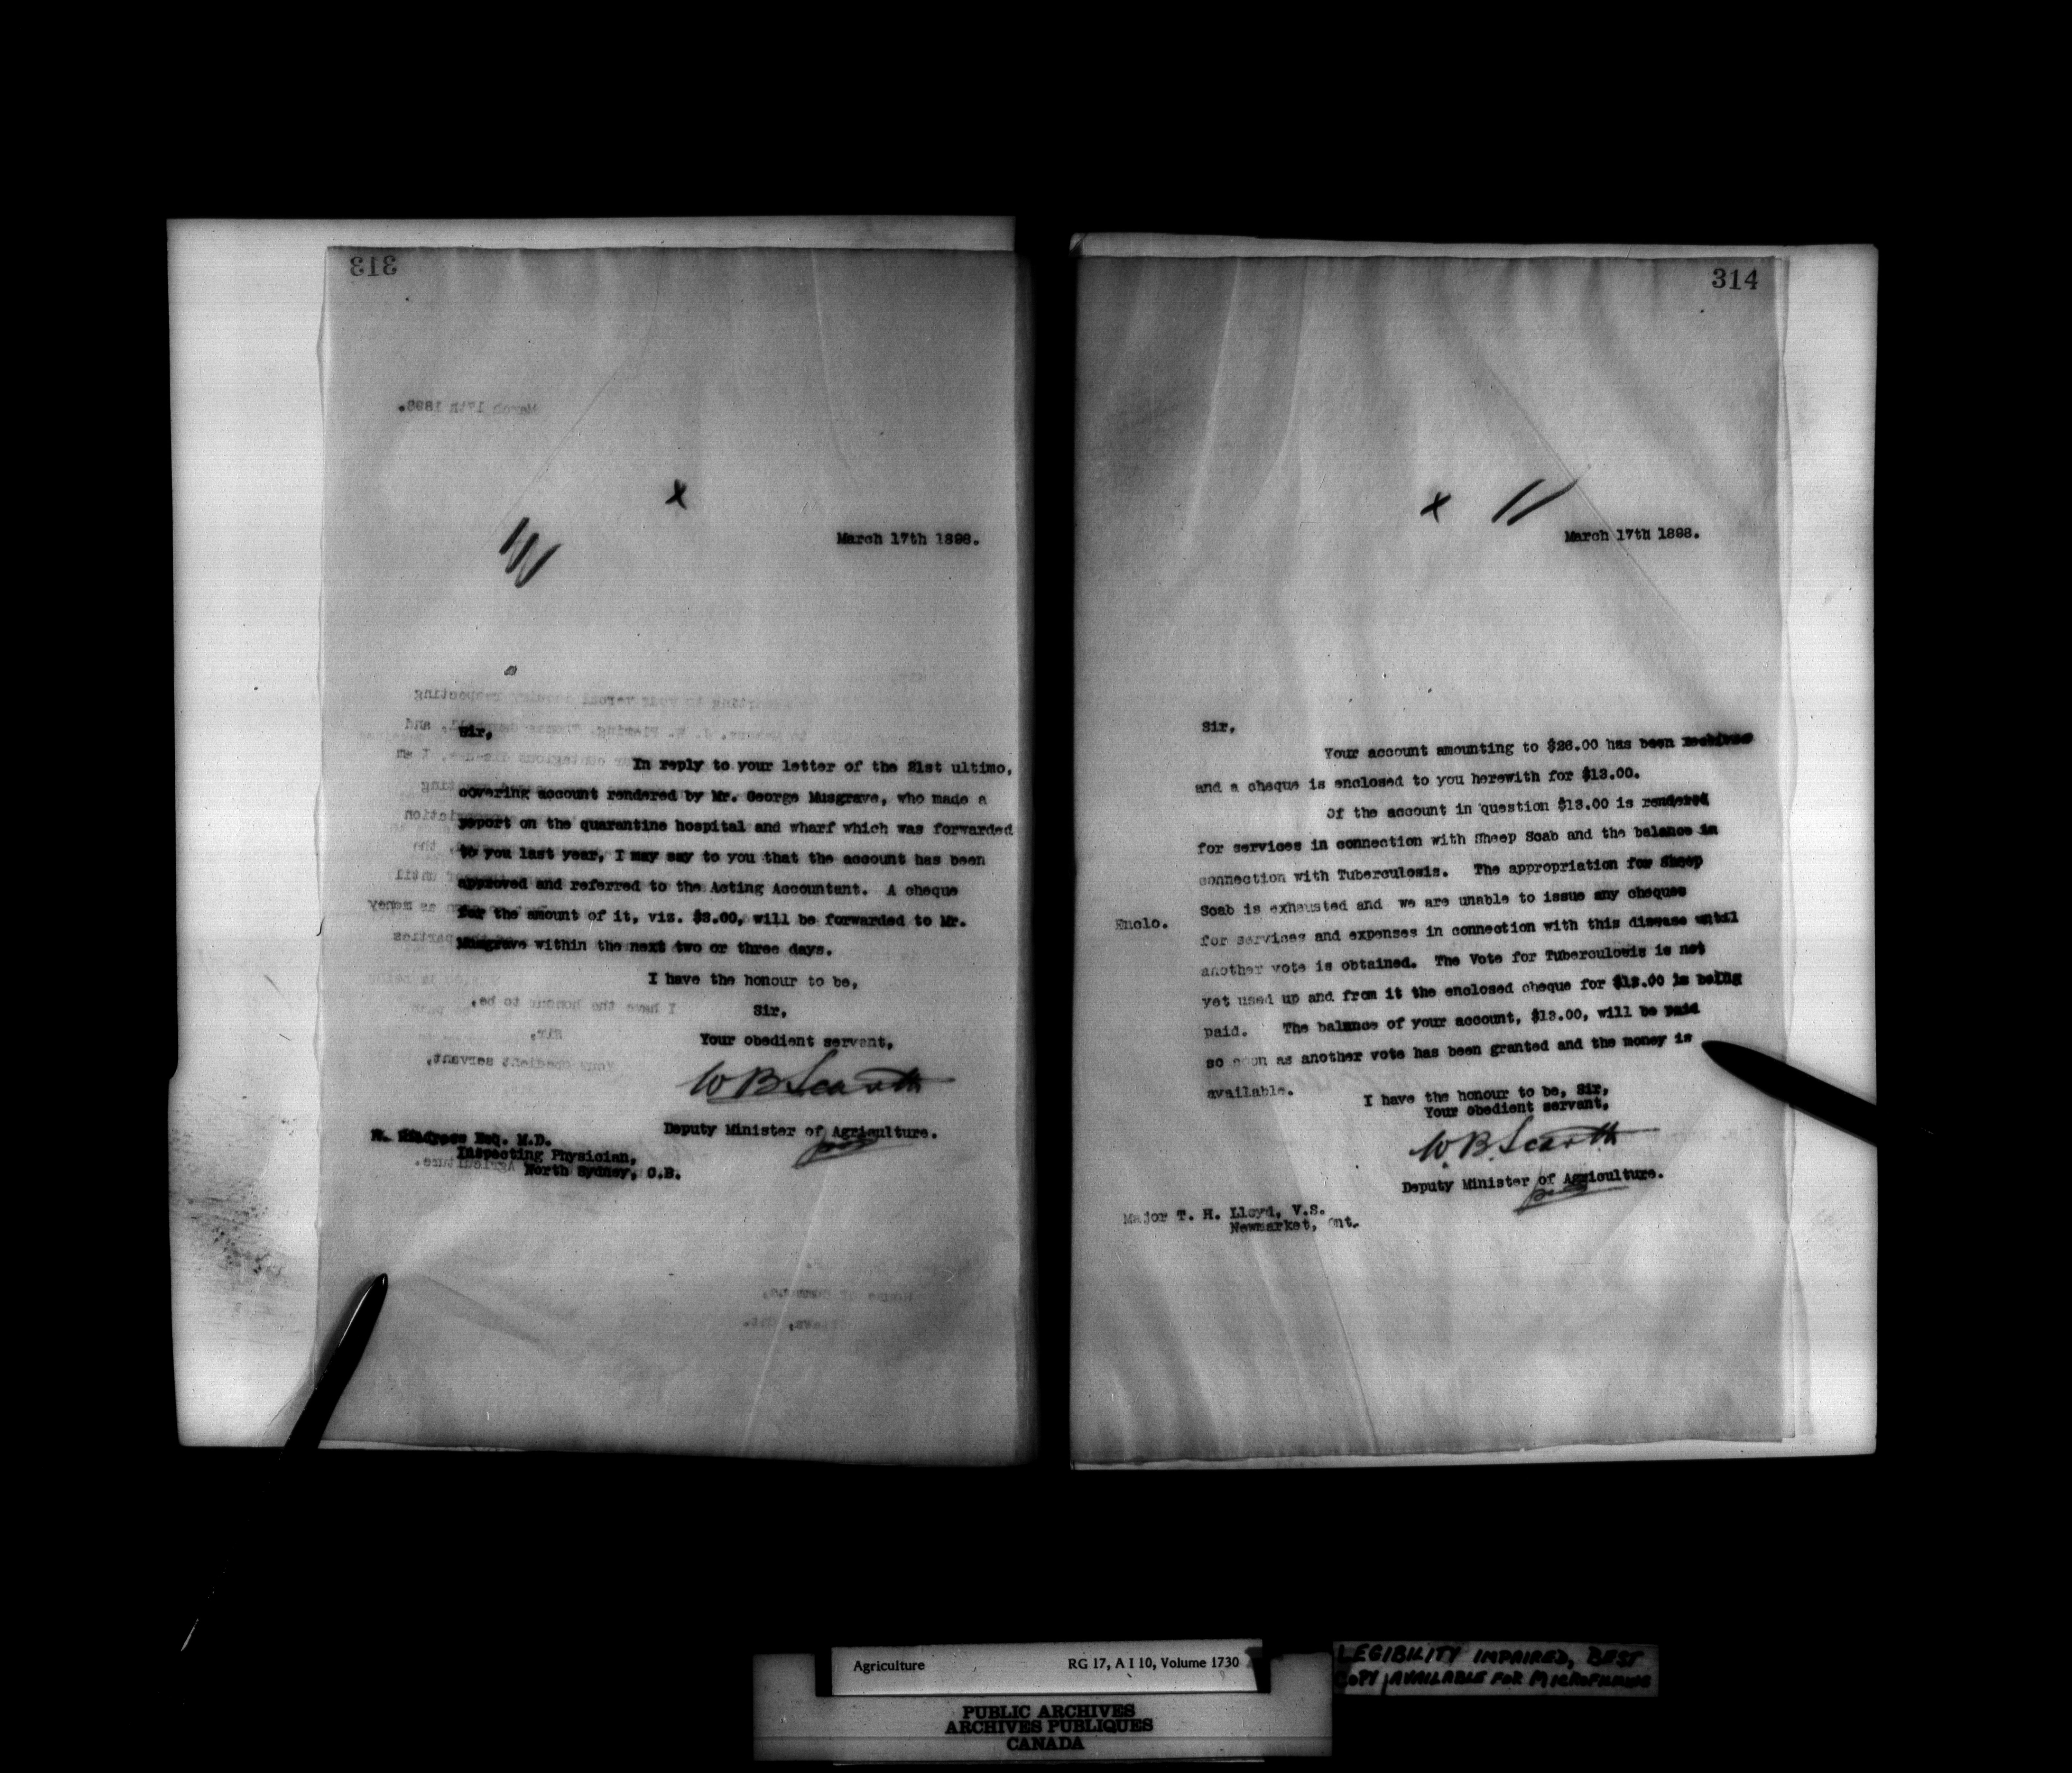 313
March 17th 1898.
Sir,
In reply to your letter of the 21st ultimo,
covering account rendered by Mr. George Musgrave, who made a
report on the quarantine hospital and wharf which was forwarded
to you last year, I may say to you that the account has been
approved and referred to the Acting Accountant. A cheque
for the amount of it, viz. $8.00, will be forwarded to Mr.
Musgrave within the next two or three days.
I have the honour to be,
Sir,
Your obedient servant,
W B Scarth
Deputy Minister of Agriculture.
Esq. M.D.
Inspecting Physician,
North Sydney, C.B.
314
March 17th 1898.
Sir,
Your account amounting to $26.00 has been received
and a cheque is enclosed to you herewith for $13.00.
Of the account in question $13.00 is rendered
for services in connection with Sheep Scab and the balance in
connection with Tuberculosis. The appropriation for Sheep
Scab is exhausted and we are unable to issue any cheques
Enclo.
for services and expenses in connection with this disease until
another vote is obtained. The Vote for Tuberculosis is not
yet used up and from it the enclosed cheque for $13.00 is being
paid. The balance of your account, $13.00, will be paid
so soon as another vote has been granted and the money is
available.
I have the honour to be, Sir,
Your obedient servant,
W. B. Scarth
Deputy Minister of Agriculture.
Major T. H. Lloyd, V.S.
Newmarket, Ont.
Agriculture RG 17, A I 10, Volume 1730
LEGIBILITY IMPAIRED, BEST
COPY AVAILABLE FOR MICROFILMING
PUBLIC ARCHIVES
ARCHIVES PUBLIQUES
CANADA